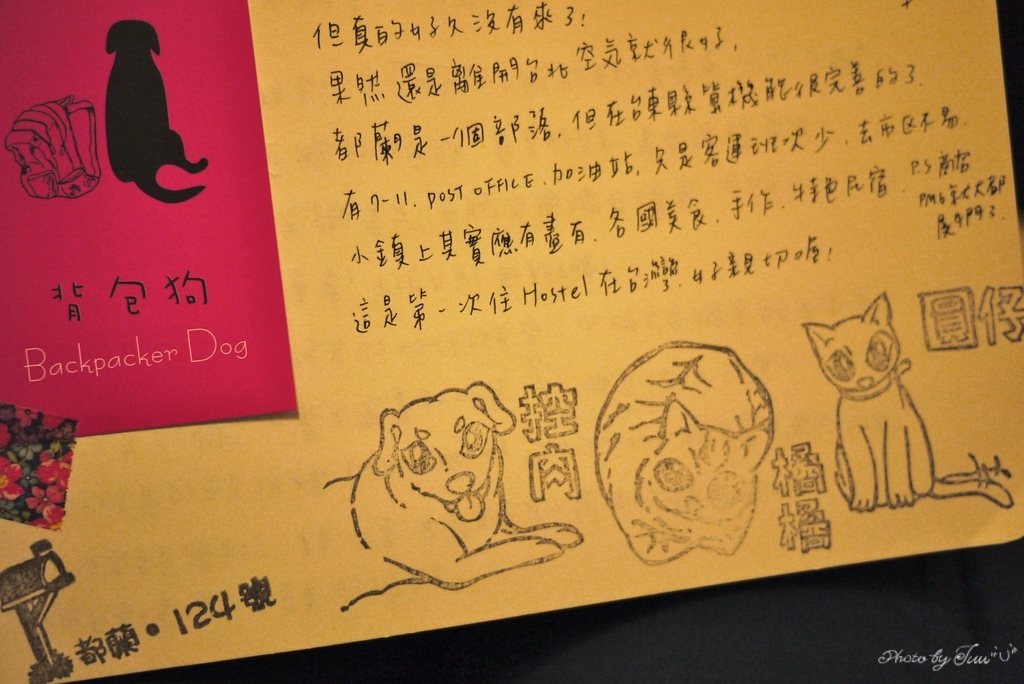 但真的好久沒有來了!
果然還是離開台北空氣就很好,
都蘭是一個部落,但在台東縣算機能很完善的了.
有7-11, POST OFFICE, 加油站, 只是客運班次少, 去市區不易.
小鎮上其實應有盡有, 各國美食, 手作, 特色民宿, P.S 商店
PM6就大都
關門了.
這是第一次住Hostel在台灣, 好親切唷!
背包狗
Backpacker Dog
控肉
橘橘
圓仔
都蘭•124號
Photo by Juu"U"